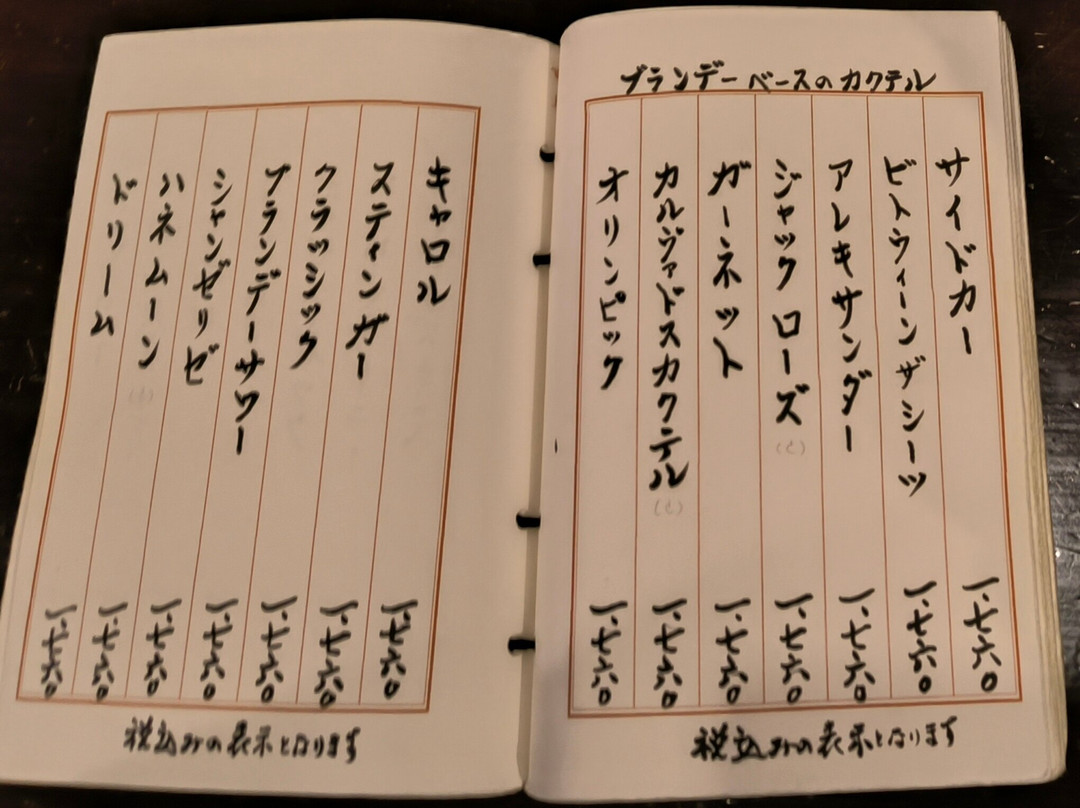 ブランデーベースのカクテル
サイドカー 一.七六〇
ビトウィーンザシーツ 一.七六〇
アレキサンダー 一.七六〇
ジャックローズ (と) 一.七六〇
ガーネット 一.七六〇
カルヴァドスカクテル (と) 一.七六〇
オリンピック 一.七六〇
税込みの表示となります
キャロル 一.七六〇
スティンガー 一.七六〇
クラッシック 一.七六〇
ブランデーサワー 一.七六〇
シャンゼリゼ 一.七六〇
ハネムーン (と) 一.七六〇
ドリーム 一.七六〇
税込みの表示となります